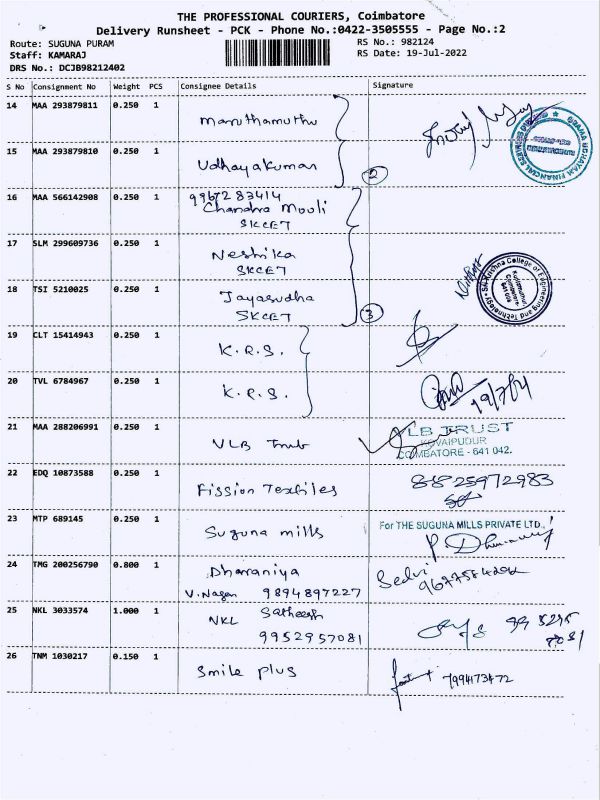 THE PROFESSIONAL COURIERS, Coimbatore
Delivery Runsheet - PCK - Phone No.:0422-3505555 - Page No.:2
Route: SUGUNA PURAM
RS No.: 982124
Staff: KAMARAJ
RS Date: 19-Jul-2022
DRS No.: DCJB98212402
S No Consignment No Weight PCS Consignee Details Signature
14 MAA 293879811 0.250 1 Maruthamuthu
15 MAA 293879810 0.250 1 Udhayakumar
2
16 MAA 566142908 0.250 1 9967283414
Chandra Mouli
SKCET
17 SLM 299609736 0.250 1 Neshika
SKCET
Sri Krishna College of Engineering and Technology
Kuniamuthur
Coimbatore
641 008
18 TSI 5210025 0.250 1 Jayasudha
SKCET
3
19 CLT 15414943 0.250 1 K.R.S.
20 TVL 6784967 0.250 1 K.R.S.
19/7/21
21 MAA 288206991 0.250 1 VLB Trust
VLB TRUST
KOVAIPUDUR
COIMBATORE - 641 042.
22 EDQ 10873588 0.250 1 Fission Textiles
8825972983
23 MTP 689145 0.250 1 Suguna mills
For THE SUGUNA MILLS PRIVATE LTD.,
24 TMG 200256790 0.800 1 Dharaniya
V.Nagar 9894897227
Sedvi
25 NKL 3033574 1.000 1 Satheesh
NKL
9952957081
26 TNM 1030217 0.150 1 Smile plus
7994173472